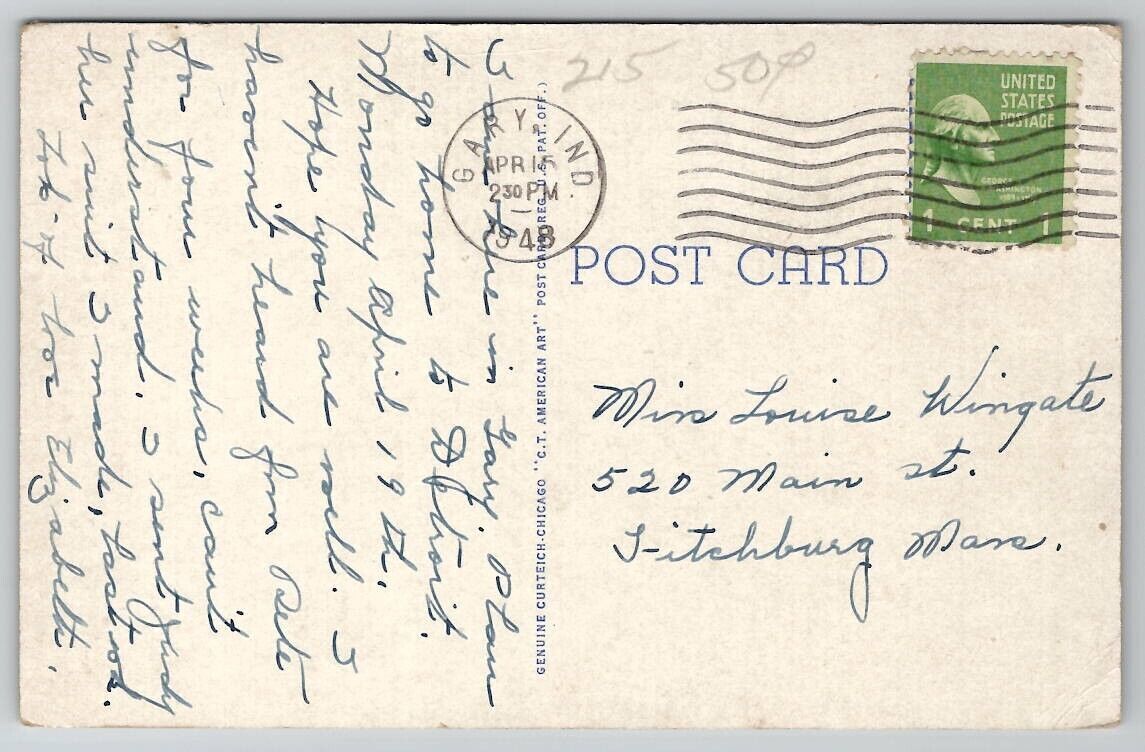 I am here in Gary. Plan
to go home to Detroit.
Monday April 19th.
Hope you are well. I
havent heard from Pete
for four weeks, can't
understand. I sent Judy
her suit I made, last wk.
Elizabeth.
215 50¢
GARY, IND.
APR 15
2 30 PM
1948
UNITED
STATES
POSTAGE
GEORGE
WASHINGTON
1 CENT 1
POST CARD
GENUINE CURTEICH-CHICAGO "C.T. AMERICAN ART" POST CARD (REG. U.S. PAT. OFF.)
Miss Louise Wingate
520 Main st.
Fitchburg Mass.